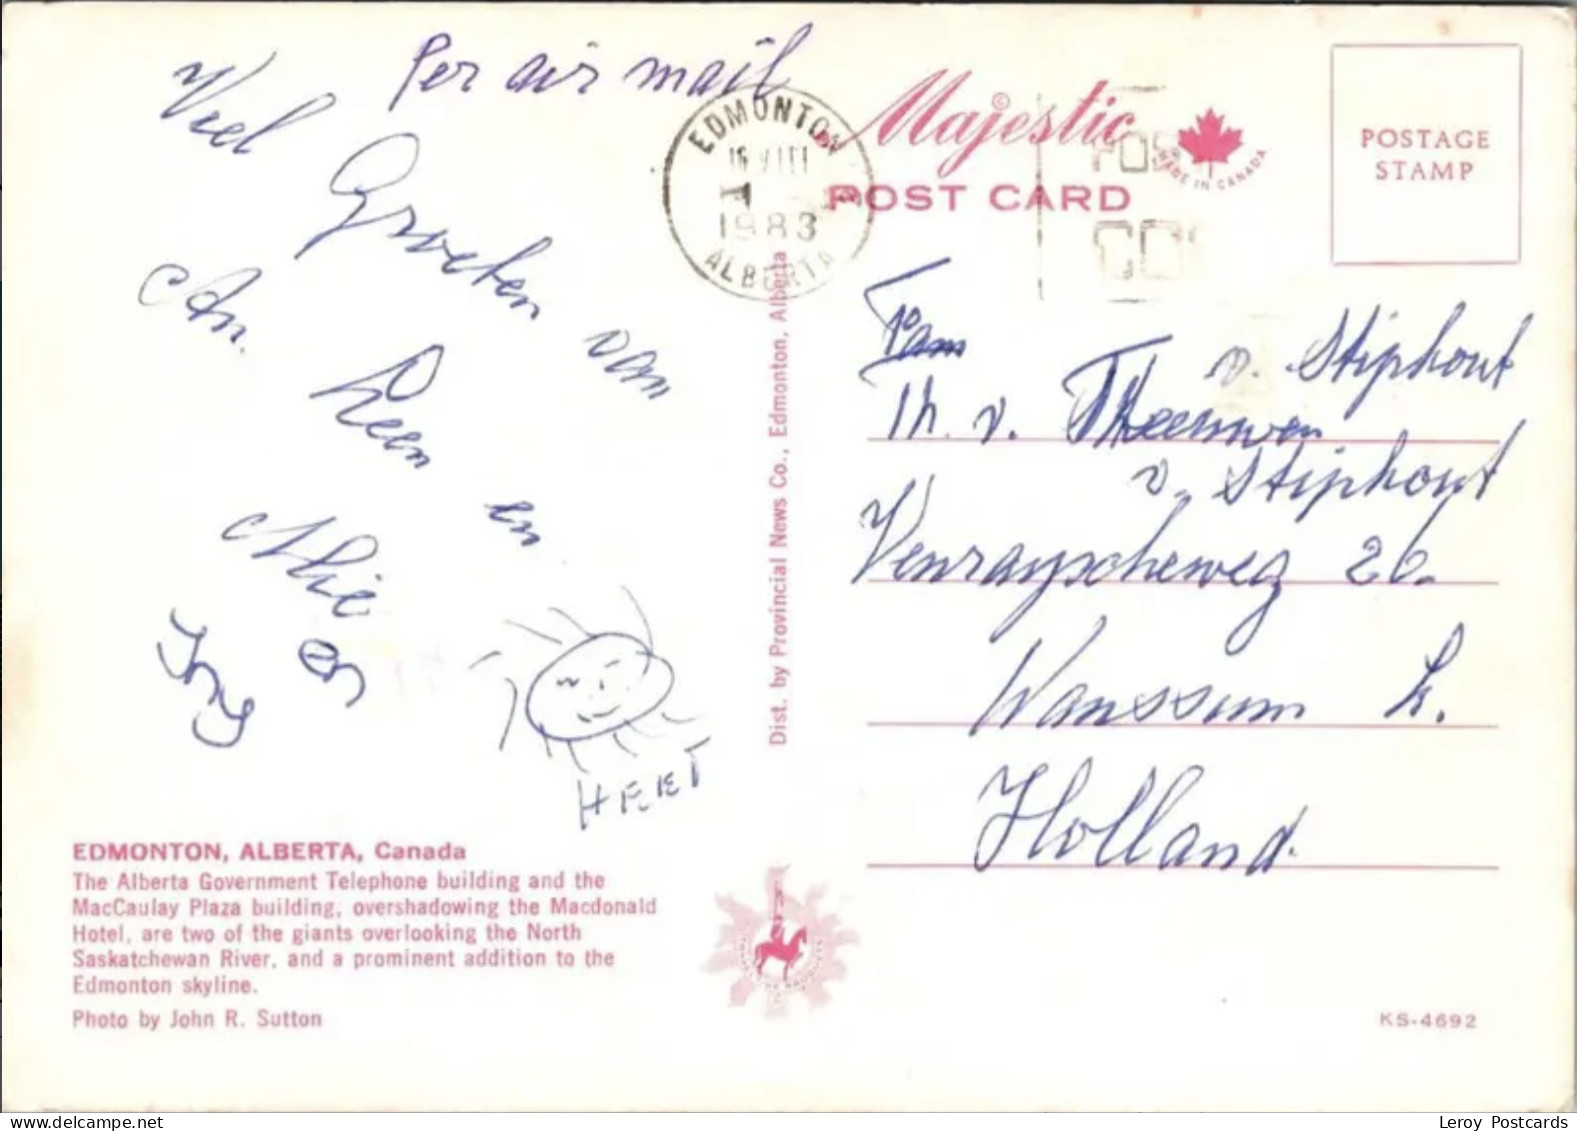 Per air mail
Viel Groeten van
An. Leen en
Mie en
Iny
HEET
EDMONTON
16 VIII
1983
ALBERTA
Majestic ©
POST CARD
MADE IN CANADA
POSTAGE
STAMP
Fam
v. Stiphout
Th. v. Theeuwen
v. Stiphout
Venrayscheweg 26.
Wanssum L.
Holland.
Dist. by Provincial News Co., Edmonton, Alberta
EDMONTON, ALBERTA, Canada
The Alberta Government Telephone building and the
MacCaulay Plaza building, overshadowing the Macdonald
Hotel, are two of the giants overlooking the North
Saskatchewan River, and a prominent addition to the
Edmonton skyline.
Photo by John R. Sutton
KS-4692
Leroy Postcards